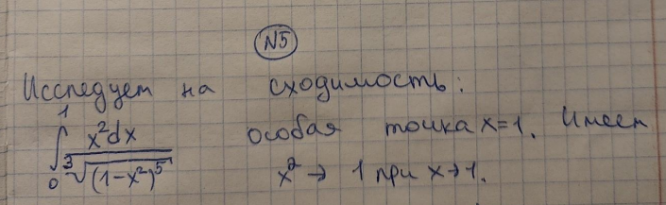 N5
Исследуем на сходимость:
∫₀¹ x²dx / ∛((1-x²)⁵) особая точка x=1. Имеем
x² → 1 при x→1.